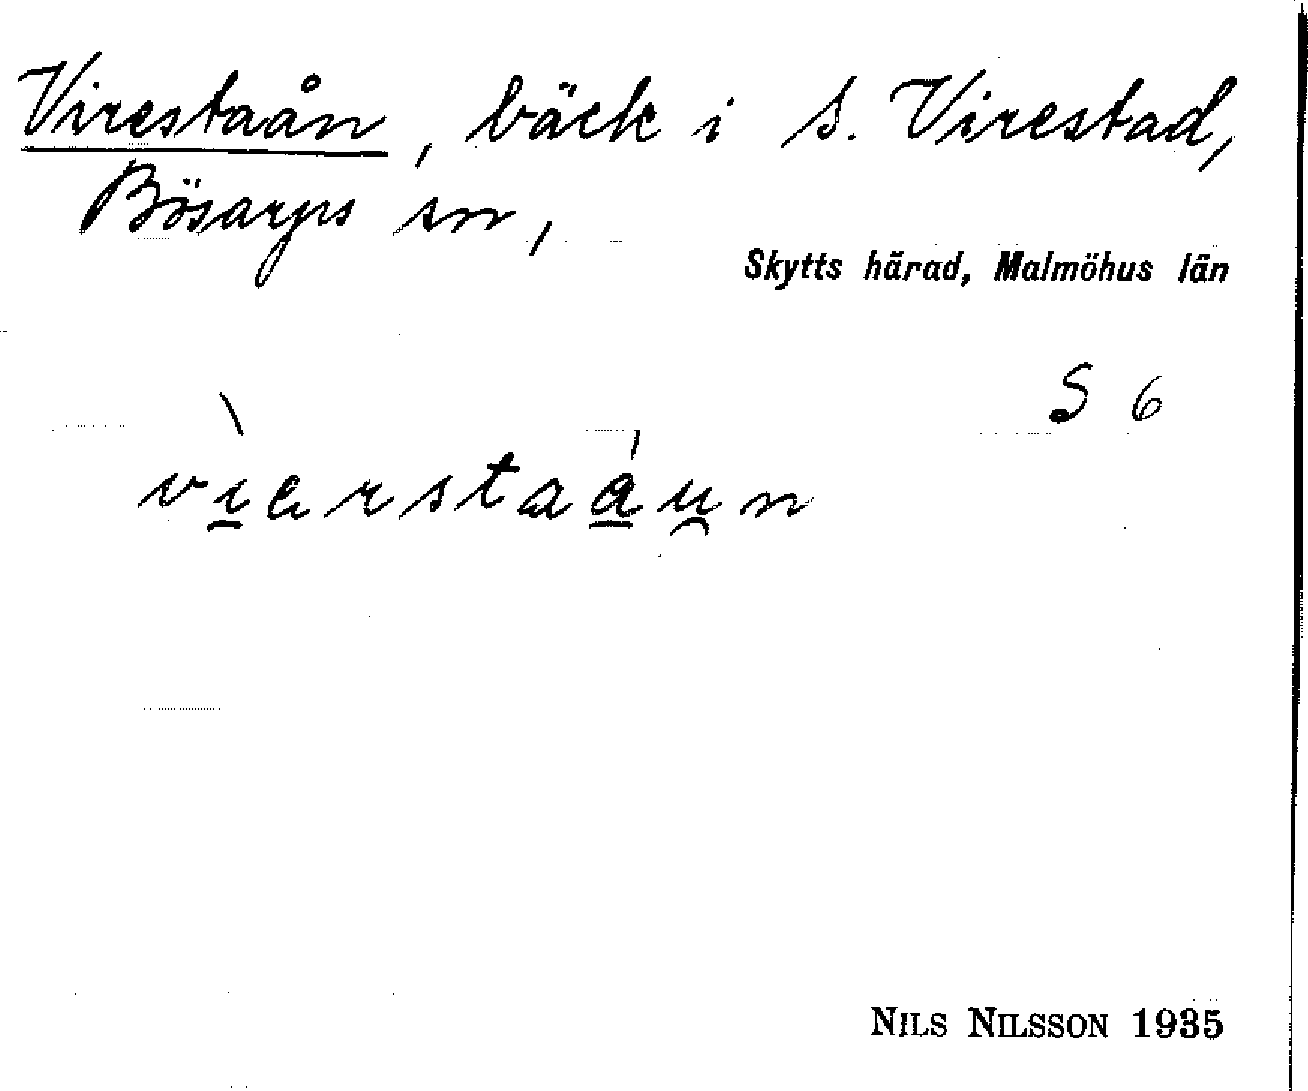 Virestaån, bäck i S. Virestad,
Bösarps sn,
Skytts härad, Malmöhus län
S 6
vìerstaáun
NILS NILSSON 1935